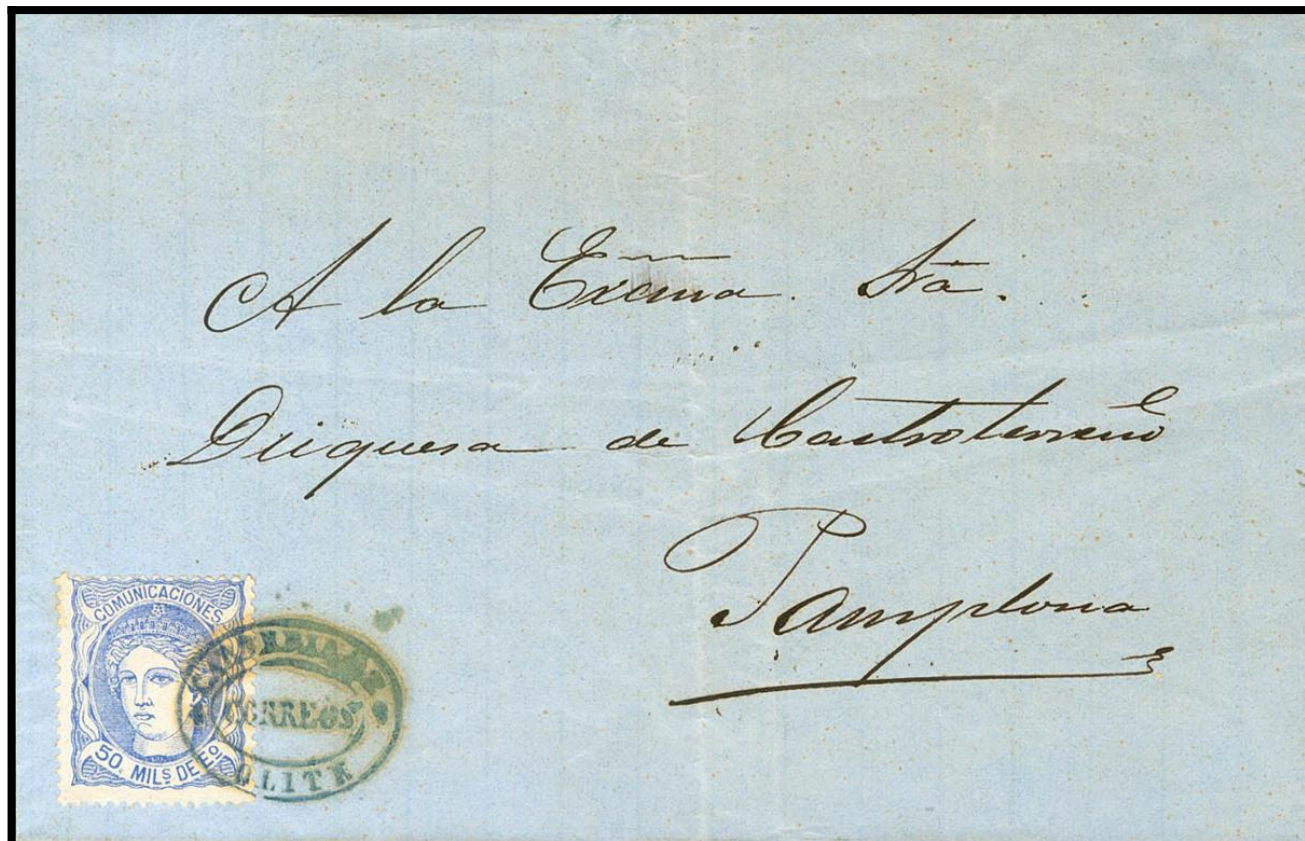 A la Excma. Sra.
Duquesa de Castroterreño
Pamplona
COMUNICACIONES
50. MILS DE Eo
CORREOS
OLITE